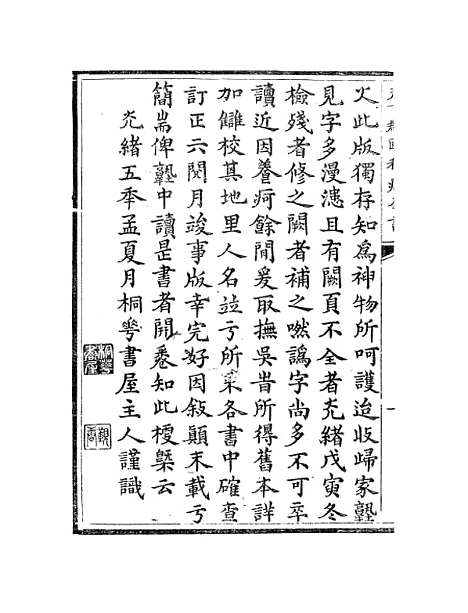 火此版獨存知為神物所呵護迨收歸家塾
見字多漫漶且有闕頁不全者光緒戊寅冬
檢殘者修之闕者補之唯譌字尚多不可卒
讀近因養疴餘閒爰取撫吳旹所得舊本詳
加讎校其地里人名竝亏所采各書中確查
訂正六閱月竣事版幸完好因敘顛末載亏
簡耑俾塾中讀是書者開卷知此梗槩云
光緒五年孟夏月桐華書屋主人謹識
桐華書屋